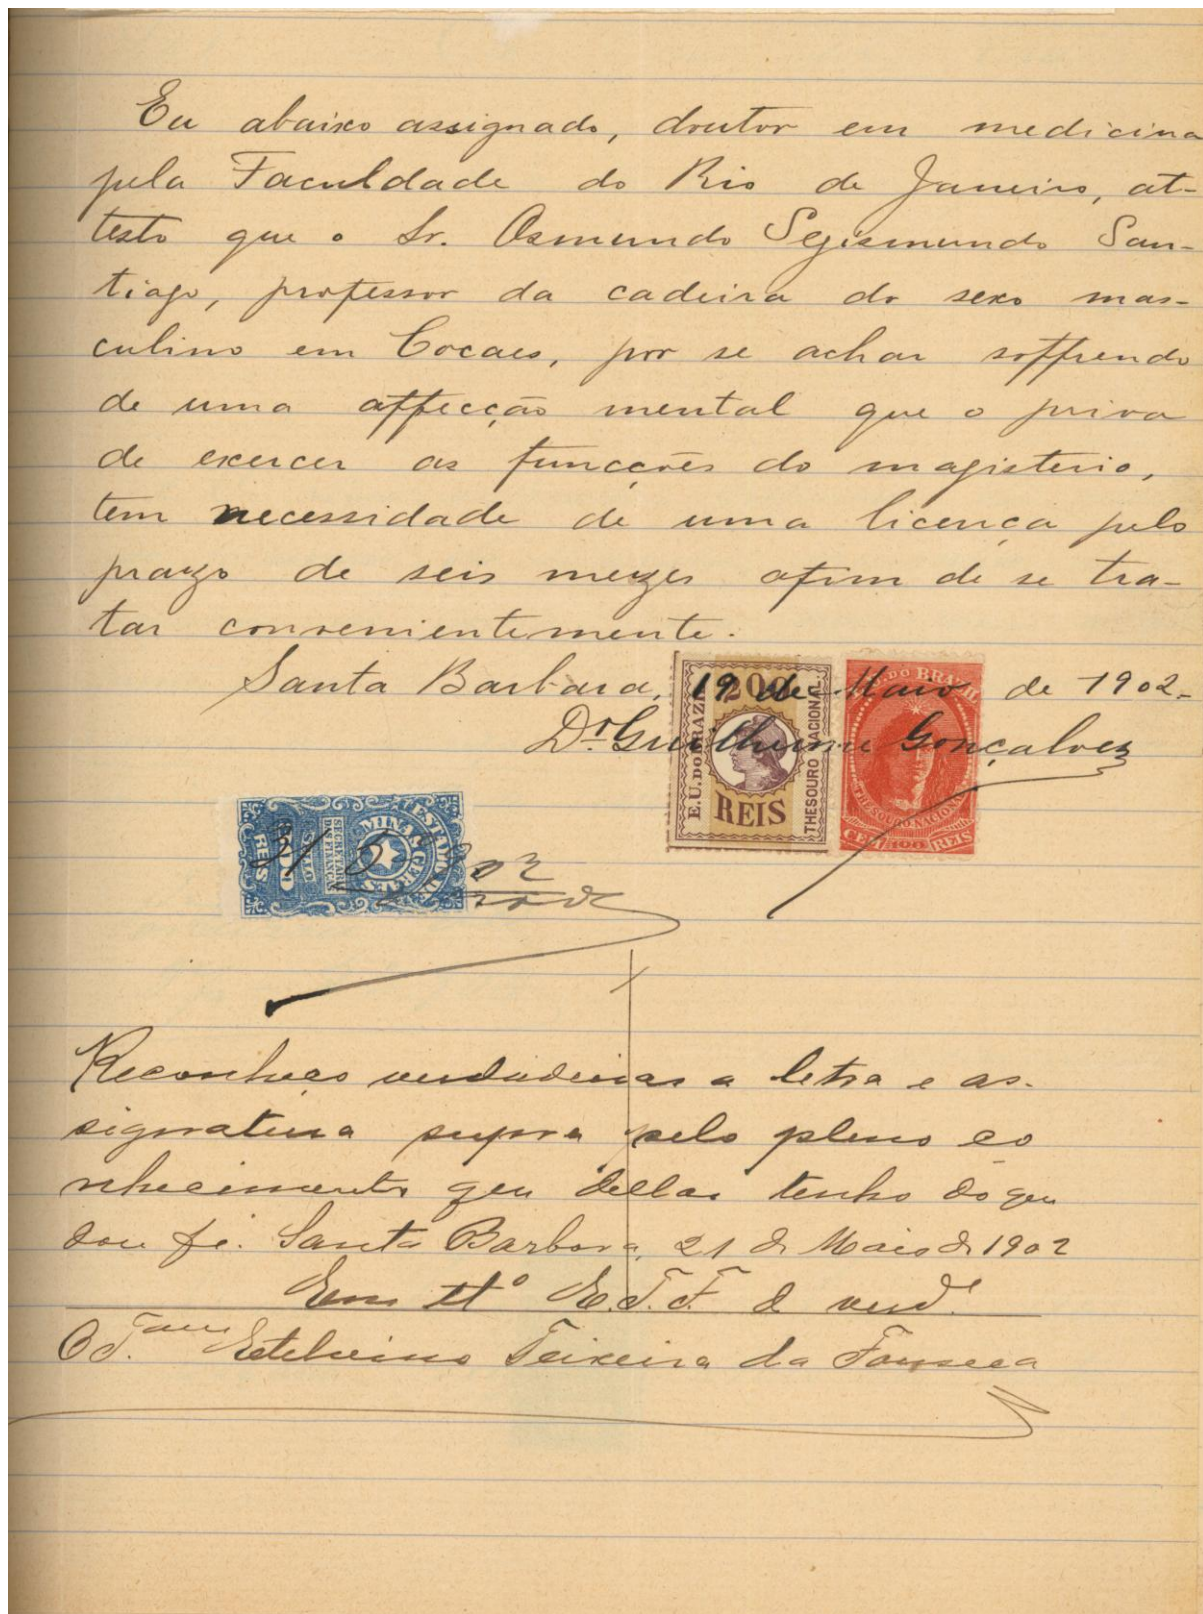 Eu abaixo assignado, doutor em medicina
pela Faculdade do Rio de Janeiro, at-
testo que o Sr. Osmundo Segismundo San-
tiago, professor da cadeira do sexo mas-
culino em Cocaes, por se achar soffrendo
de uma affecção mental que o priva
de exercer as funcções do magisterio,
tem necessidade de uma licença pelo
prazo de seis mezes afim de se tra-
tar convenientemente.
Santa Barbara, 19 de Maio de 1902.
Dr. Guilherme Gonçalves
E.U. DO BRAZIL 200 REIS THESOURO NACIONAL
E.U. DO BRAZIL THESOURO NACIONAL CEM 100 REIS
ESTADO DE MINAS GERAES SECRETARIA DAS FINANÇAS SELLO REIS
21 5 902
Reconheço verdadeiras a letra e as-
signatura supra pelo pleno co
nhecimento que dellas tenho do que
dou fé. Santa Barbara, 21 de Maio de 1902
Em tto E. T. F. de verd.e
O T.am Estelvino Teixeira da Fonseca